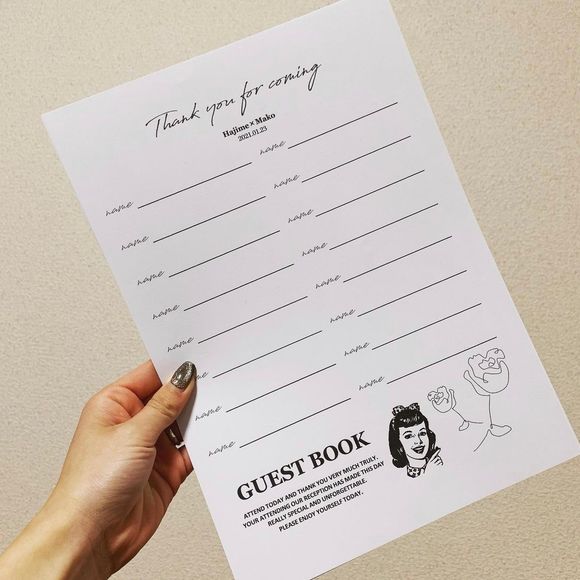 Thank you for coming
Hajime×Mako
2021.01.23
name name
name name
name name
name name
name name
name name
name name
name name
GUEST BOOK
ATTEND TODAY AND THANK YOU VERY MUCH TRULY.
YOUR ATTENDING OUR RECEPTION HAS MADE THIS DAY
REALLY SPECIAL AND UNFORGETTABLE.
PLEASE ENJOY YOURSELF TODAY.